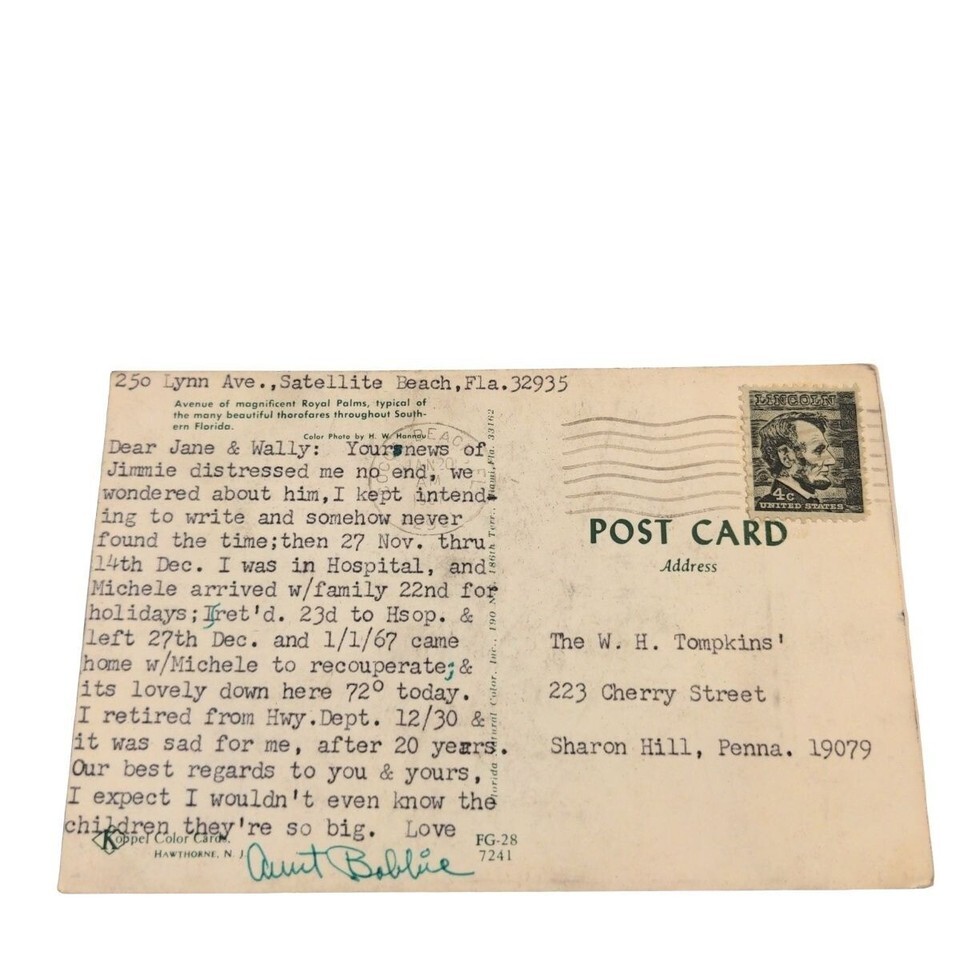 250 Lynn Ave.,Satellite Beach,Fla.32935
Avenue of magnificent Royal Palms, typical of
the many beautiful thorofares throughout South-
ern Florida.
Color Photo by H. W. Hannau
Dear Jane & Wally: Your news of
Jimmie distressed me no end, we
wondered about him,I kept intend-
ing to write and somehow never
found the time;then 27 Nov. thru
14th Dec. I was in Hospital, and
Michele arrived w/family 22nd for
holidays;I ret'd. 23d to Hsop. &
left 27th Dec. and 1/1/67 came
home w/Michele to recouperate;&
its lovely down here 72° today.
I retired from Hwy.Dept. 12/30 &
it was sad for me, after 20 years.
Our best regards to you & yours,
I expect I wouldn't even know the
children they're so big. Love
Aunt Bobbie
Koppel Color Cards.
HAWTHORNE, N. J.
FG-28
7241
Natural Color, Inc., 190 186th Terr., Miami, Fla. 33162
BEACH
JAN 20
AM
LINCOLN
4c
UNITED STATES
POST CARD
Address
The W. H. Tompkins'
223 Cherry Street
Sharon Hill, Penna. 19079